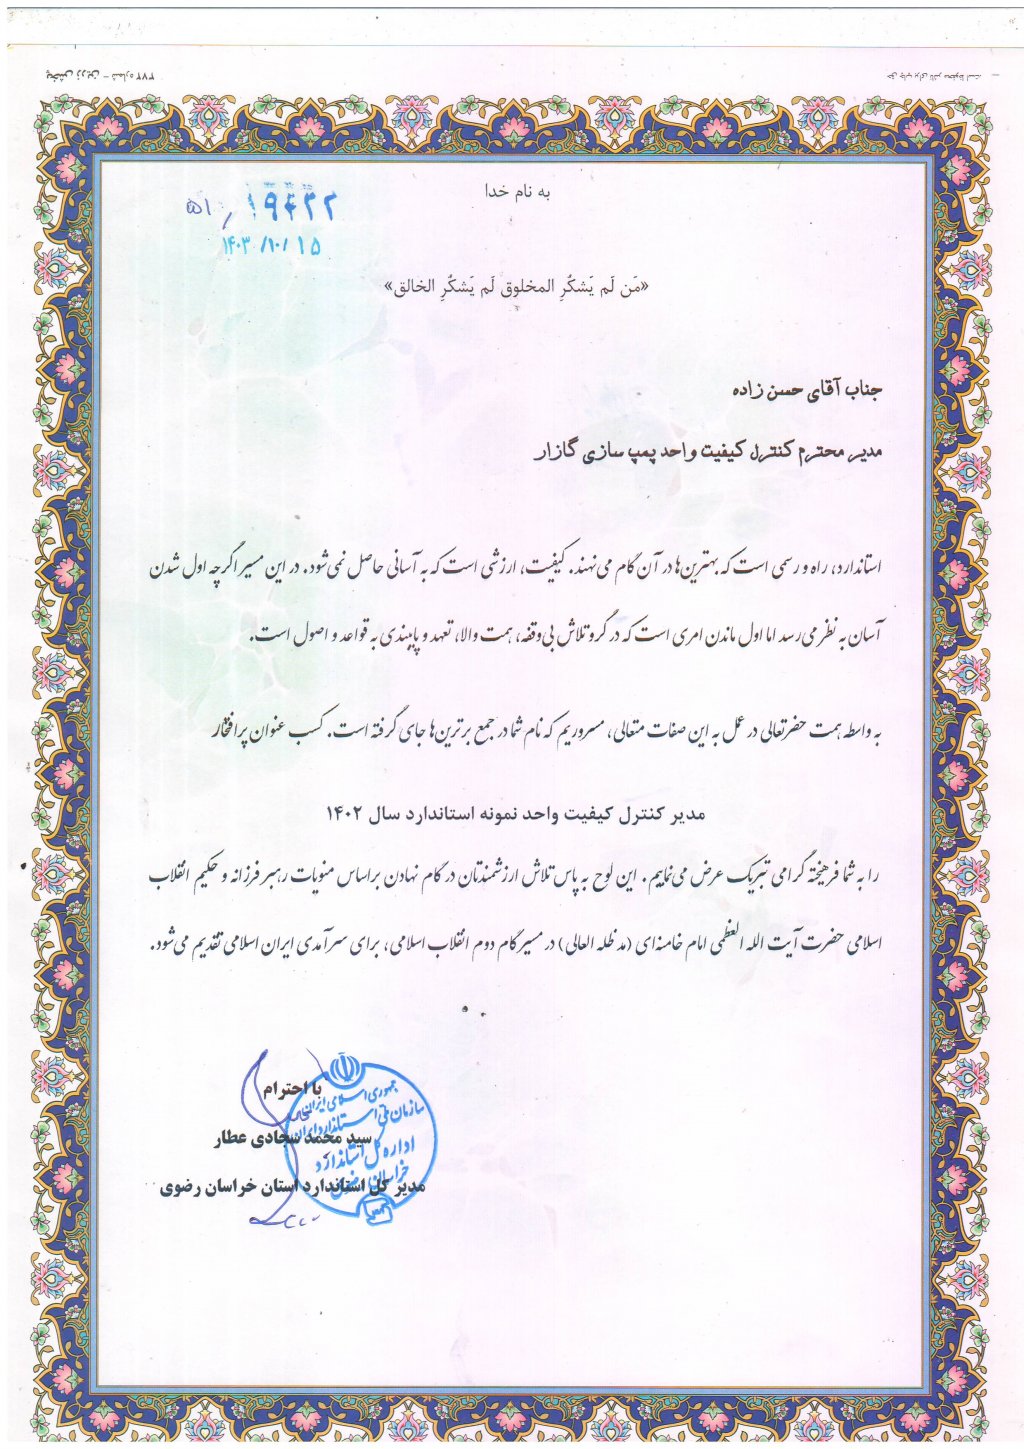 به نام خدا
۵۱/۱۹۴۳۲
۱۴۰۳/۱۰/۱۵
«مَن لَم يَشكُرِ المخلوق لَم يَشكُرِ الخالق»
جناب آقای حسن زاده
مدیر محترم کنترل کیفیت واحد پمپ سازی گازار
استاندارد، راه و رسمی است که بهترین‌ها در آن گام می‌نهند. کیفیت، ارزشی است که به آسانی حاصل نمی‌شود. در این مسیر اگرچه اول شدن
آسان به نظر می‌رسد اما اول ماندن امری است که در گرو تلاش بی‌وقفه، همت والا، تعهد و پایبندی به قواعد و اصول است.
به واسطه همت حضرتعالی در عمل به این صفات متعالی، مسروریم که نام شما در جمع برترین‌ها جای گرفته است. کسب عنوان پرافتخار
مدیر کنترل کیفیت واحد نمونه استاندارد سال ۱۴۰۲
را به شما فرهیخته گرامی تبریک عرض می‌نماییم. این لوح به پاس تلاش ارزشمندتان در گام نهادن براساس منویات رهبر فرزانه و حکیم انقلاب
اسلامی حضرت آیت الله العظمی امام خامنه‌ای (مد ظله العالی) در مسیر گام دوم انقلاب اسلامی، برای سرآمدی ایران اسلامی تقدیم می‌شود.
با احترام
سید محمد سجادی عطار
مدیر کل استاندارد استان خراسان رضوی
جمهوری اسلامی ایران
سازمان ملی استاندارد ایران
اداره کل استاندارد
خراسان رضوی